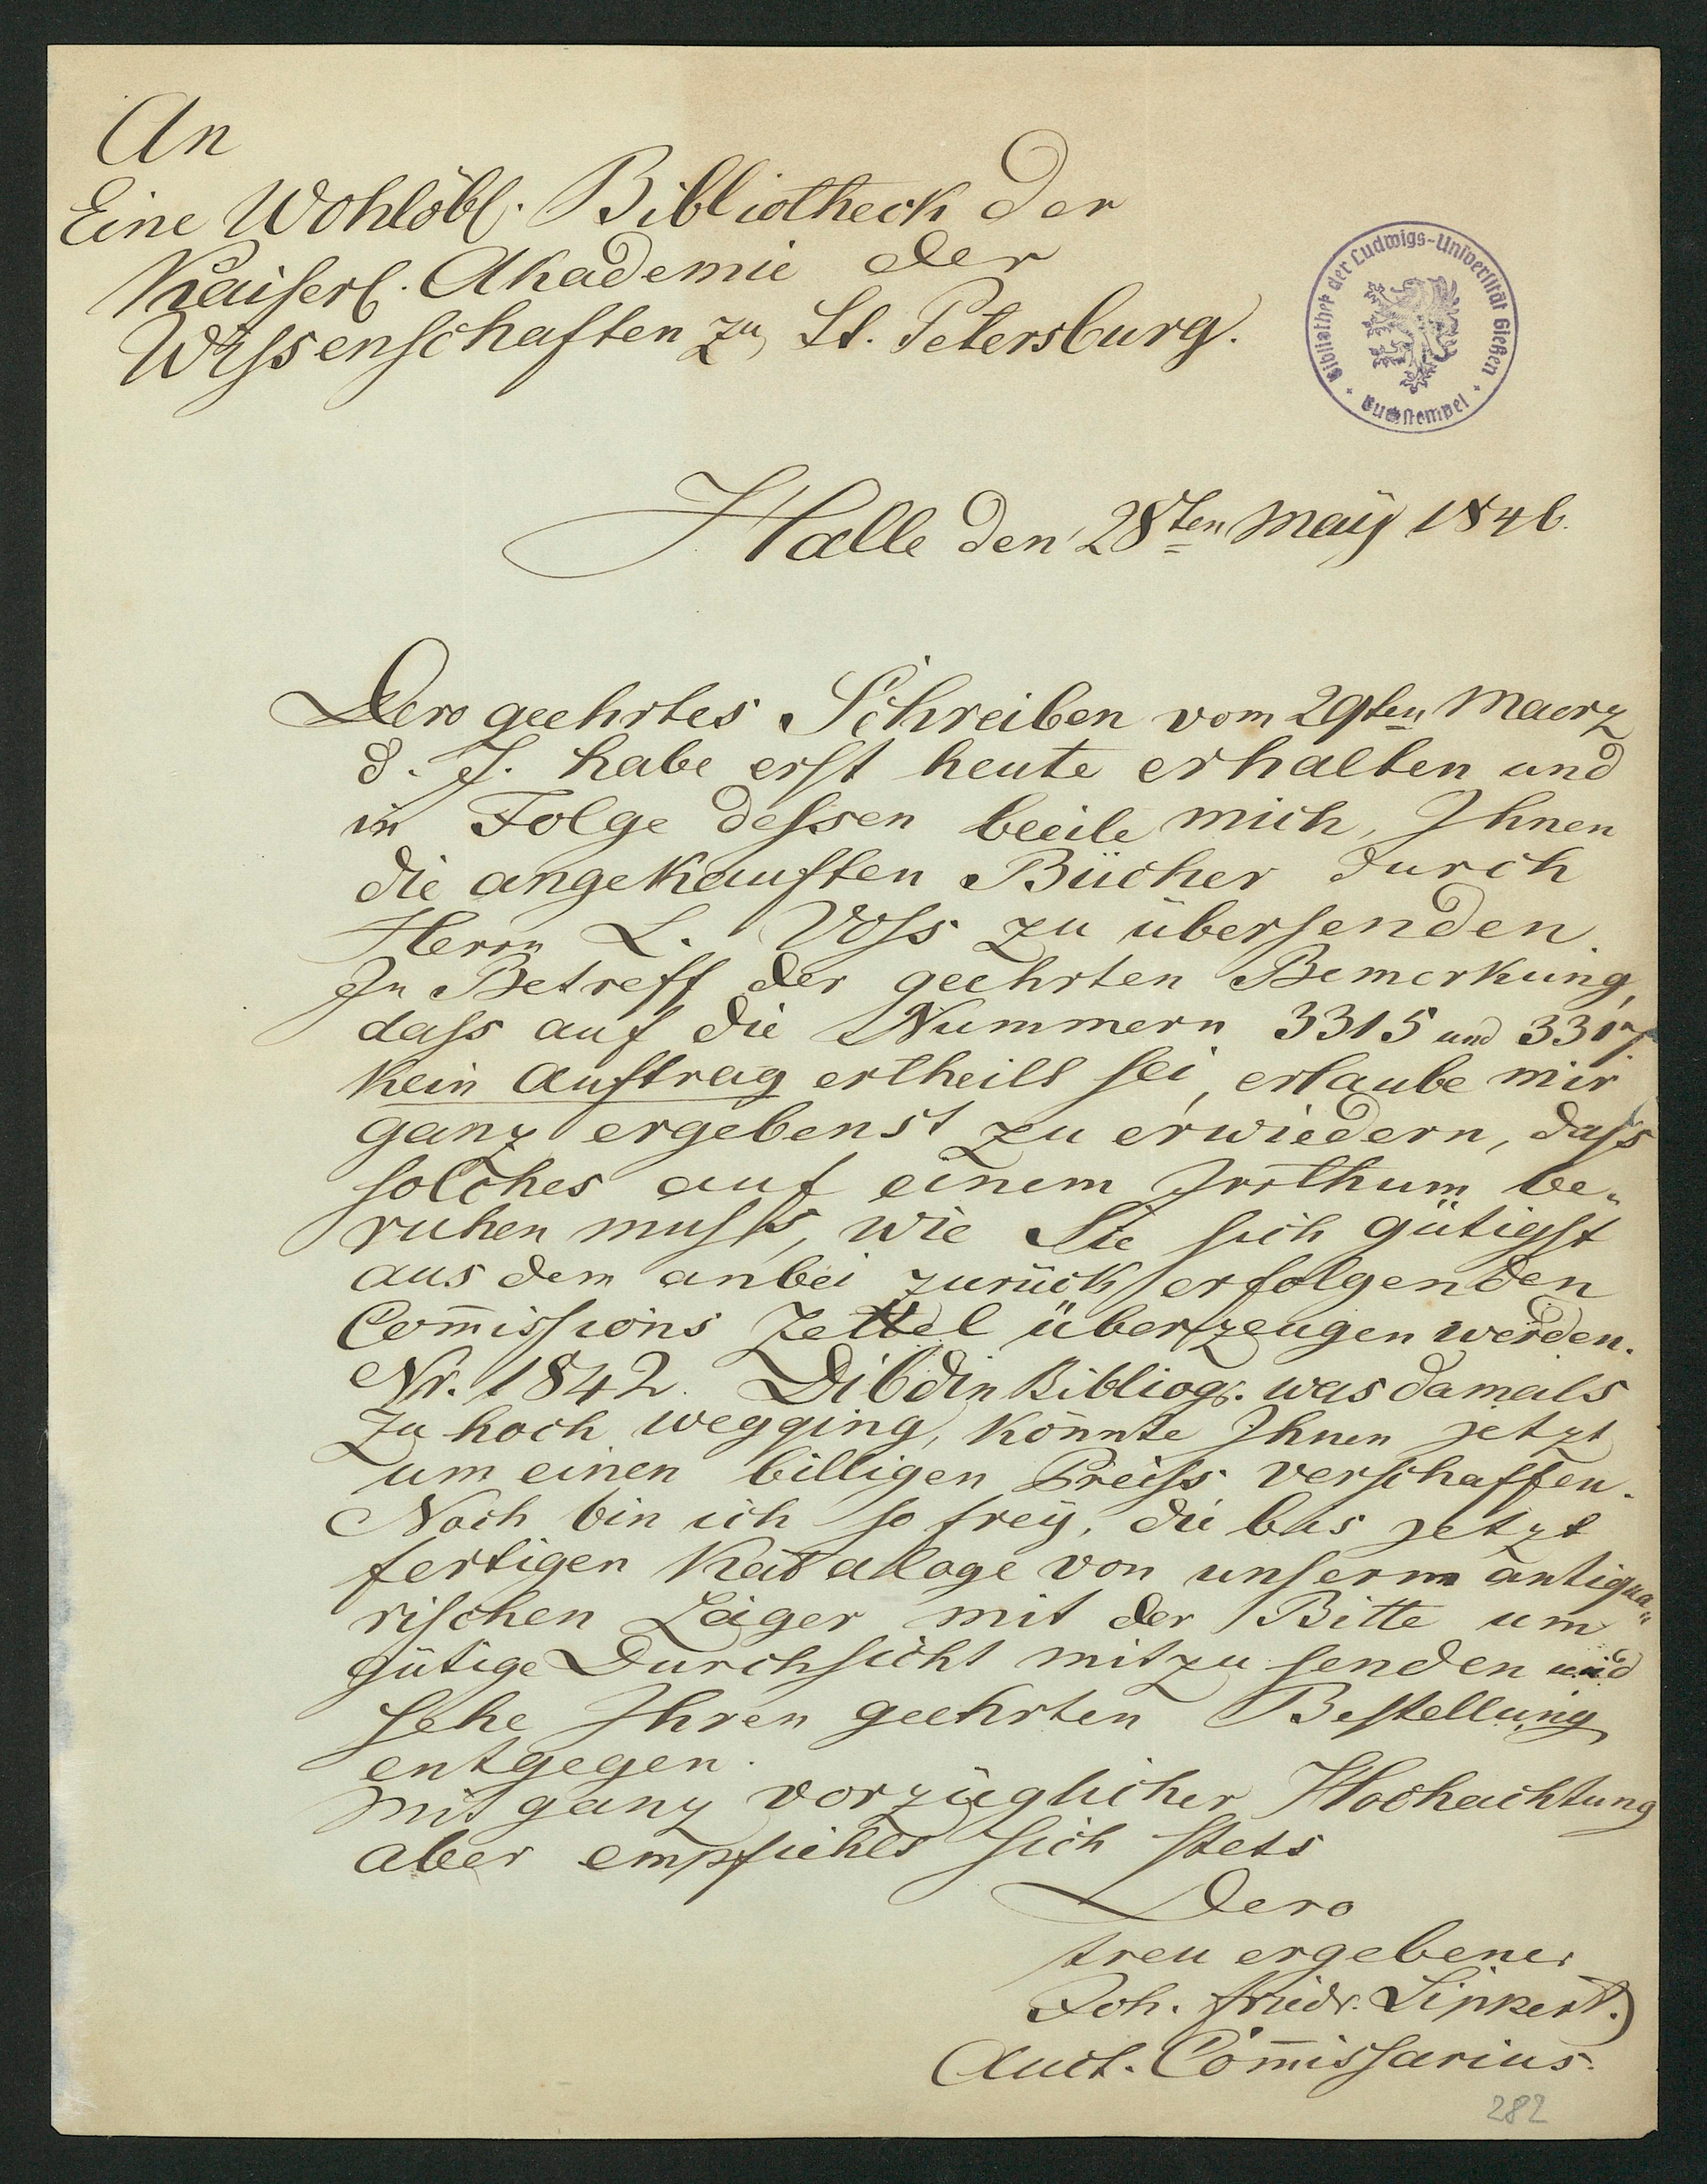 An
Eine Wohlöbl. Bibliotheck der
Kaiserl. Akademie der
Wissenschaften zu St. Petersburg.
Bibliothek der Ludwigs-Universität Gießen
Buchstempel
Halle den 28ten Maÿ 1846.
Dero geehrtes Schreiben vom 29ten Maerz
d. J. habe erst heute erhalten und
in Folge dessen beeile mich, Ihnen
die angekauften Bücher durch
Herrn L. Voss zu übersenden.
In Betreff der geehrten Bemerkung,
dass auf die Nummern 3315 und 3317.
kein Auftrag ertheilt sei, erlaube mir
ganz ergebenst zu erwiedern, dass
solches auf einem Irrthum be-
ruhen muss, wie Sie sich gütigst
aus dem anbei zurück erfolgenden
Com̄issions Zettel überzeugen werden.
Nr. 1842. Dibdin Bibliogr. was damals
zu hoch wegging, könnte Ihnen jetzt
um einen billigen Preiss verschaffen.
Noch bin ich so freÿ, die bis jetzt
fertigen Kataloge von unserm antiqua-
rischen Lager mit der Bitte um
gütige Durchsicht mitzusenden und
sehe Ihren geehrten Bestellung
entgegen.
Mit ganz vorzüglicher Hochachtung
aber empfiehlt sich stets
Dero
treu ergebener
Joh. Friedr. Lippert.
Auct. Com̄issarius.
282